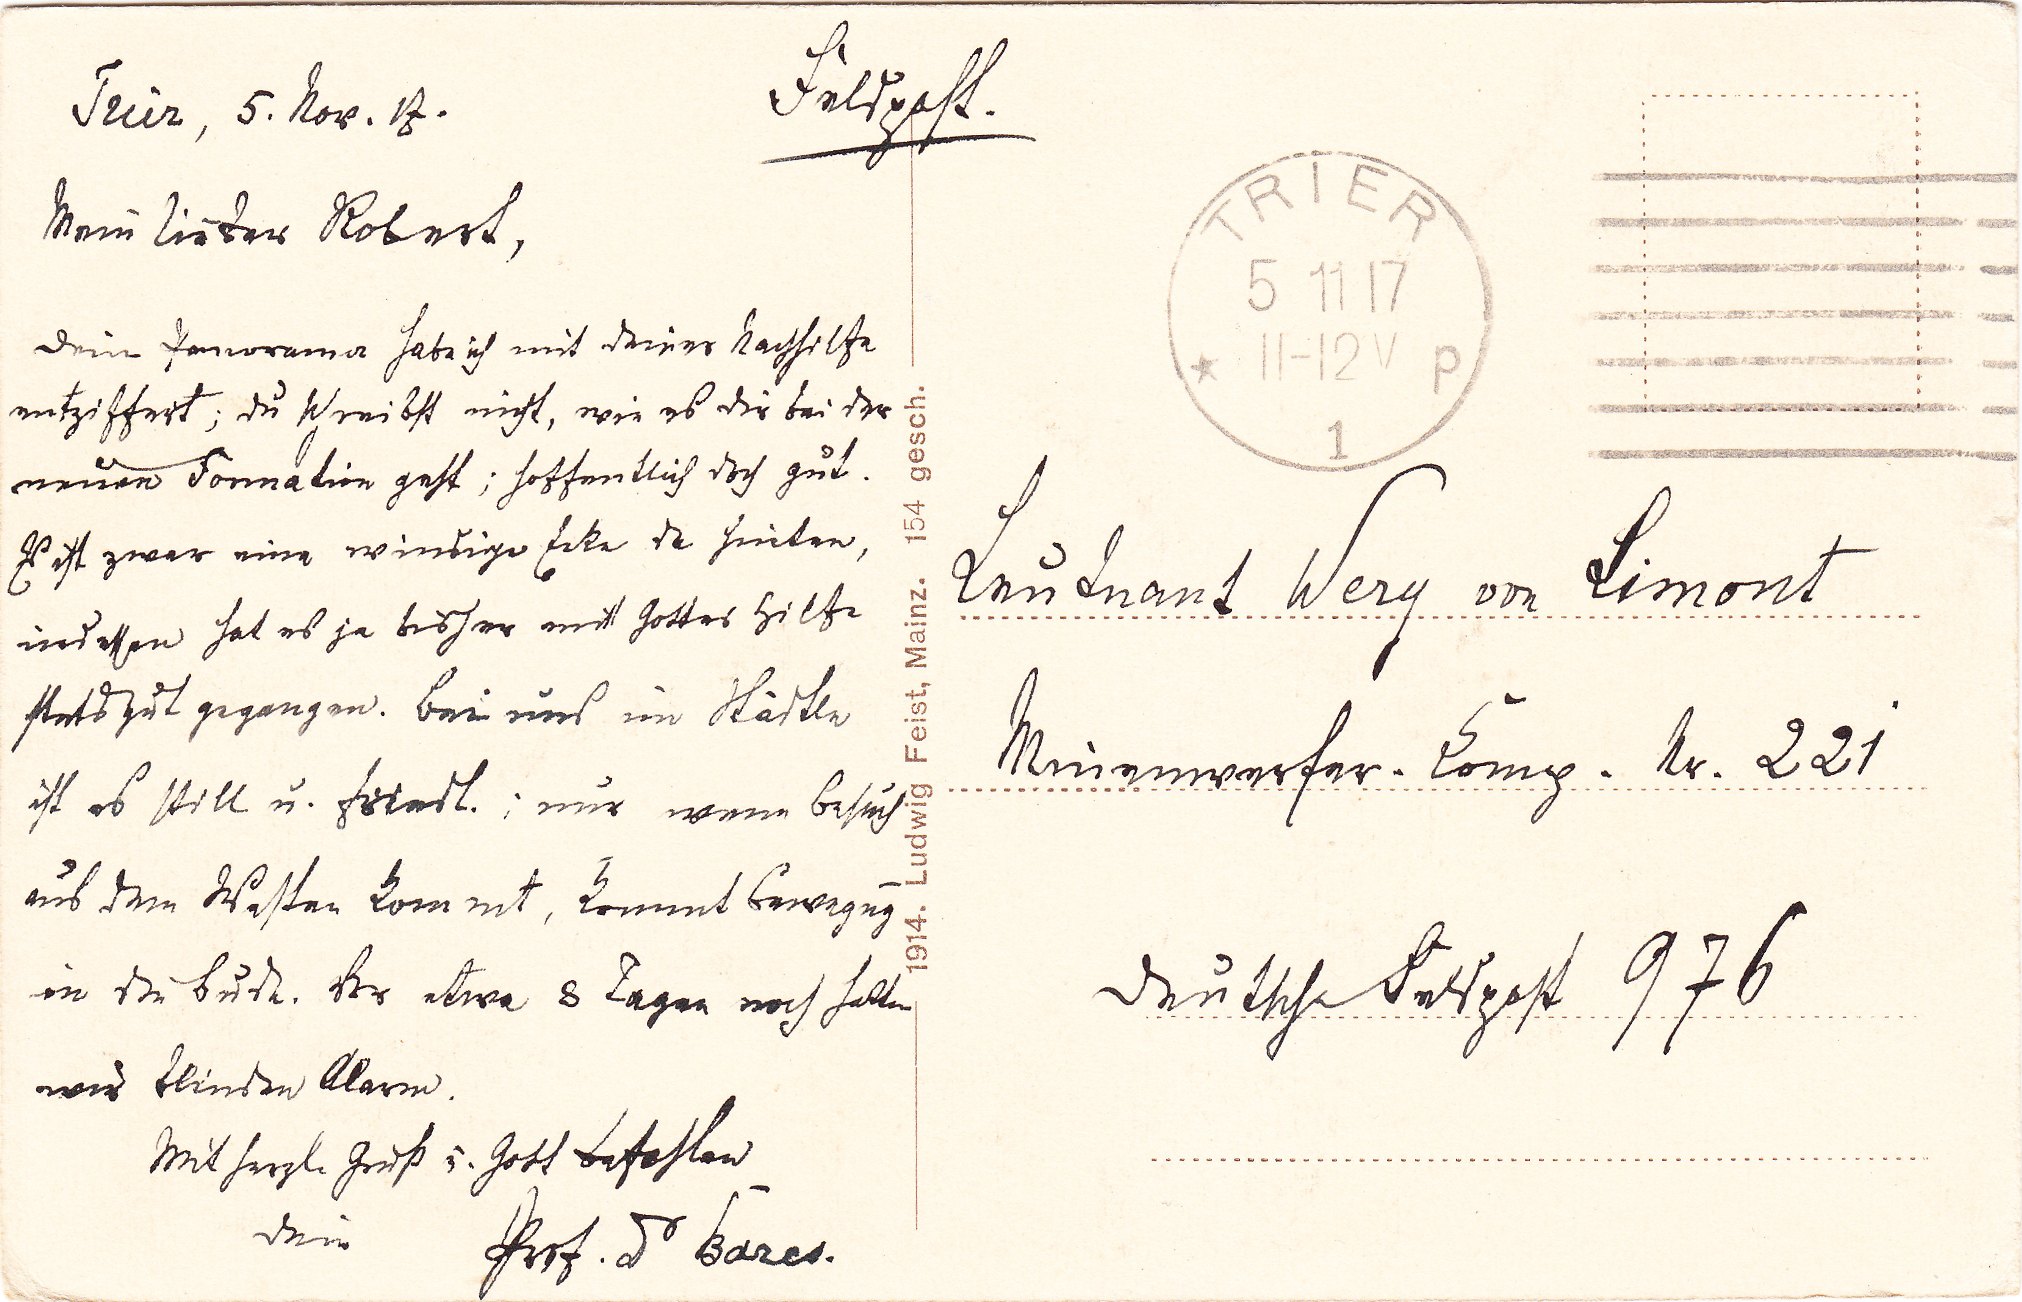 Trier, 5. Nov. 17.
Feldpost.
Mein lieber Robert,
Dein Panorama habe ich mit deiner Nachhilfe
entziffert; du schreibst nicht, wie es dir bei der
neuen Formation geht; hoffentlich doch gut.
Es ist zwar eine windige Ecke da hinten,
indessen hat es ja bisher mit Gottes Hilfe
stets gut gegangen. Bei uns im Städtle
ist es still u. friedl.; nur wenn Besuch
aus dem Westen kommt, kommt Bewegug̅
in die Bude. Vor etwa 8 Tagen noch hatten
wir blinden Alarm.
Mit herzl. Gruß u. Gott befohlen
Dein
Prof. Dr
1914. Ludwig Feist, Mainz. 154 gesch.
TRIER
5 11 17
* 11-12 V P
1
Leutnant Wery von Limont
Minenwerfer-Komp. Nr. 221
Deutsche Feldpost 976